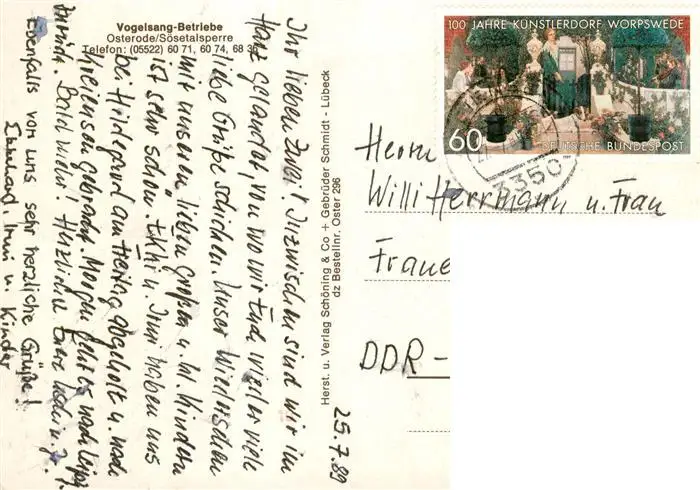 Vogelsang-Betriebe
Osterode/Sösetalsperre
Telefon: (05522) 60 71, 60 74, 68 38
Ihr lieben Zwei! Inzwischen sind wir im
Harz gelandet von wo wir Euch wieder viele
liebe Grüße schicken. Unser Wiedersehen
mit unseren lieben Großen u. kl. Kindern
ist sehr schön. Ekki u. Irmi haben uns
bei Hildegard am Freitag abgeholt u. nach
gebracht. Morgen geht's nach
zurück. Bald mehr! Herzlichst Eure
Ebenfalls von uns sehr herzliche Grüße!
Ekkehard, Irmi u.
Kinder
25.7.89
Herst. u. Verlag Schöning & Co + Gebrüder Schmidt - Lübeck
dz Bestellnr. Oster 296
100 JAHRE KÜNSTLERDORF WORPSWEDE
60 DEUTSCHE BUNDESPOST
3350
Herrn
Willi Herrmann u. Frau
Fraue
DDR-